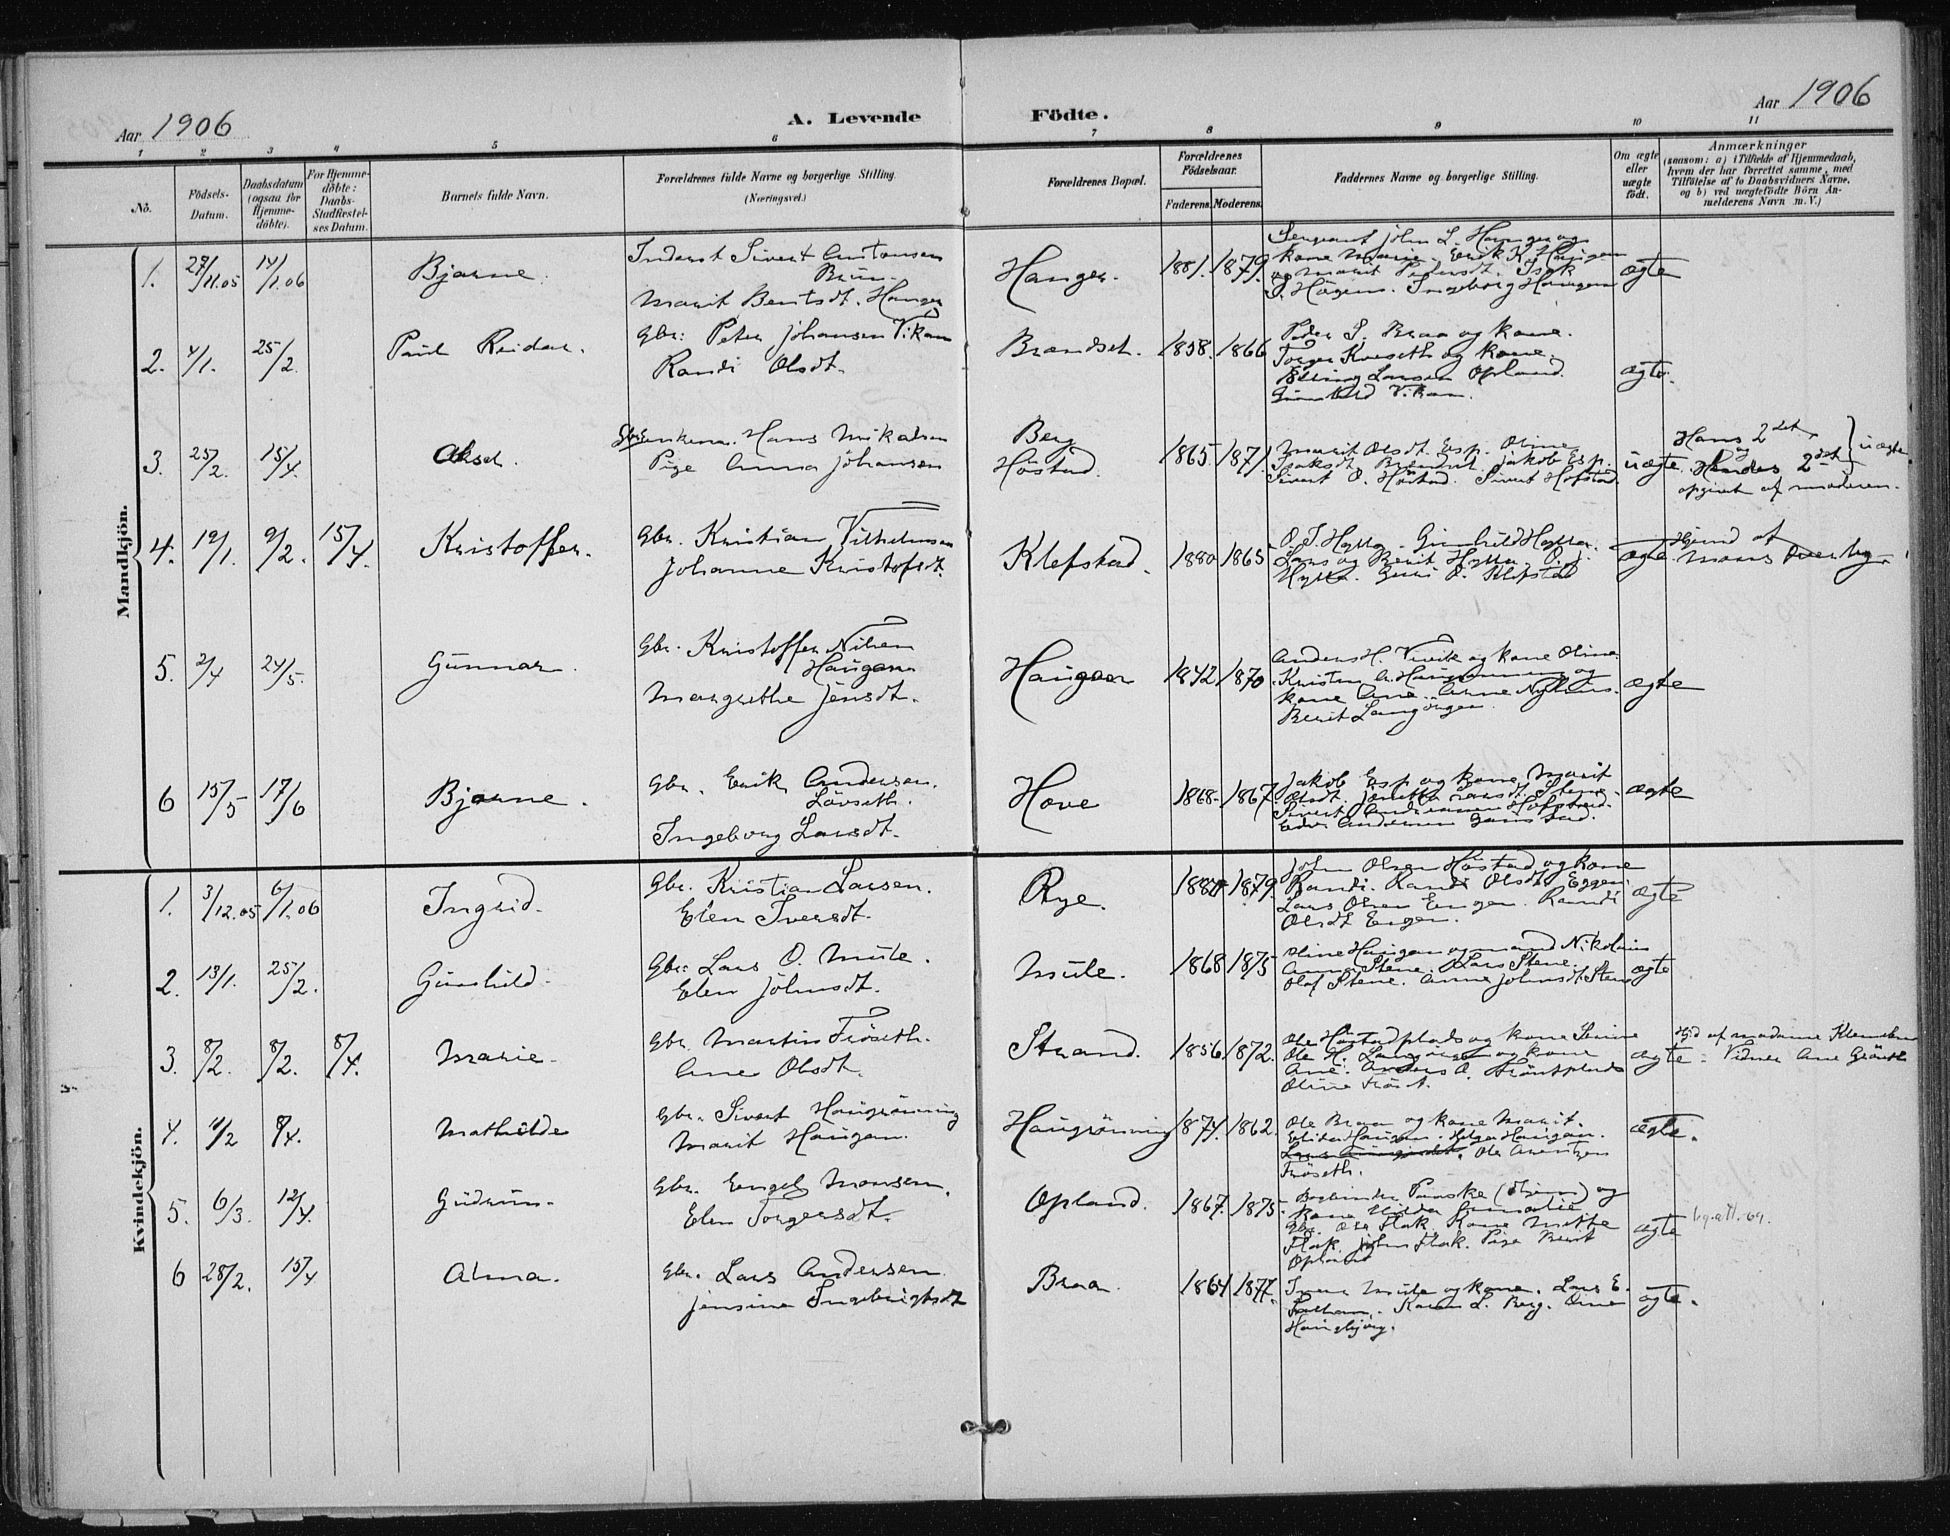 Aar 1906
A. Levende
Födte.
Aar 1906
1 2 3 4 5 6 7 8 9 10 11
No.
Födsels-Datum.
Daabsdatum (ogsaa for Hjemme-döbte).
For Hjemme-döbte: Daabs-Stadfæstel-ses Datum.
Barnets fulde Navn.
Forældrenes fulde Navne og borgerlige Stilling.
(Næringsvei.)
Forældrenes Bopæl.
Forældrenes Födselsaar.
Faderens. Moderens.
Faddernes Navne og borgerlige Stilling.
Om ægte eller uægte födt.
Anmærkninger
(saasom: a) i Tilfælde af Hjemmedaab,
hvem der har forrettet samme, med
Tilföielse af to Daabsvidners Navne,
og b) ved uægtefödte Börn An-
melderens Navn m. V.)
Mandkjön.
1. 27/11.05 14/1.06 Bjarne.
Sivert Antonsen
Brun
Marit Bentsdt. Hanger
Hanger. 1881. 1879.
Sergeant John L. Hanger og
kone Marie. Erik K. Haugen
og Marit Pedersdt. Isak
Ingeborg Haugen
ægte
2. 4/1. 25/2. Paul Reidar.
Gbr: Peter Johansen Vikan
Randi Olsdt.
Brandset. 1858. 1866
Peder S. Braa og kone.
Torger Kvæseth og kone.
Elling Larsen Opland.
Gunhild Vikan.
ægte.
3. 25/2. 15/4. Aksel.
Enkem. Hans Mikalsen
Pige Anna Johansen
Berg
Höstad. 1865. 1871.
Marit Olsdt. Esp. Oline
Isaksdt. Brandset. Jakob Esp.
Sivert O. Höstad. Sivert Hofstad.
uægte
Hans 2det
og
Hendes 2det } uægte
opgivet af moderen.
4. 19/1. 9/2. 15/4. Kristoffer.
Gbr. Kristian Vilhelmsen
Johanne Kristofsdt.
Klefstad. 1880 1865
O. J. Hytta. Gunhild Hytta.
Lars og Berit Hytta. O. J.
Hytta. Guri O. Klefstad
ægte
Hjmd af
Mons Overby.
5. 2/4 24/5. Gunnar.
Gbr. Kristoffer Nilsen
Haugan
Margrethe Jensdt.
Haugan 1842 1870
Anders H. Tvite og kone Oline.
Kristen A. og
kone Ane. Arne
Berit Langörgen.
ægte
6 15/5 17/6 Bjarne.
Gbr. Erik Andersen
Lövseth.
Ingeborg Larsdt.
Hove 1868. 1867.
Jakob Esp og kone Marit
Olsdt. Larsdt. Stene.
Sivert Andreassen Hofstad.
Andersen
ægte
Kvindekjön.
1. 3/12.05 6/1.06 Ingrid.
Gbr. Kristian Larsen.
Elen Iversdt.
Rye. 1880. 1879.
John Olsen Höstad og kone
Randi. Randi Olsdt. Eggen
Lars Olsen Engen. Randi
Olsdt Engen.
ægte
2. 13/1. 25/2. Gunhild.
Gbr. Lars O. Mule.
Elen Johnsdt.
Mule. 1868 1875
Oline Haugan og mand Nikolai
Anna Stene. Lars Stene.
Olaf Stene. Anne Johnsdt. Stene
ægte
3. 8/2. 8/2. 8/4. Marie.
Gbr. Martin Fröseth.
Ane Olsdt.
Strand. 1856. 1872.
Ole Höstadplads og kone
Ole H. Langörgen og kone
Ane. Anders O.
Oline
ægte
Hjd af madame
Vidner Ane
4. 4/2 8/4. Mathilde
Gbr. Sivert Haugrönning
Marit Haugan.
Haugrönning 1874. 1862.
Ole Braa og kone Marit.
Haugan. Helga Haugan.
Ole Arentzen
Fröseth.
ægte.
5. 6/3. 12/4. Gudrun.
Gbr. Engel Monsen.
Elen Torgersdt.
Opland. 1867. 1875
og
kone Hilda
Gbr. Ole Flak. Kone Mette
Flak. John Flak. Pige Berit
Opland
ægte
6 28/2. 15/4 Alma.
Gbr. Lars Andersen
Jensine Ingebrigtsdt
Braa. 1864 1877.
Iver Mule og kone. Lars E.
Karen L. Berg. Oline
Haugbjörg.
ægte.